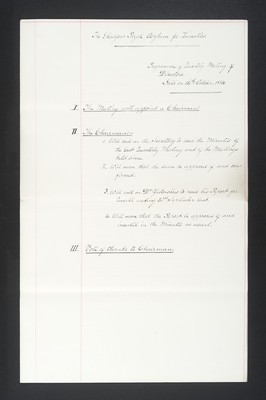 The Glasgow Royal Asylum for Lunatics
Programme of Quarterly Meeting of
Directors
Held on 14th October 1884
I. The Meeting will appoint a Chairman
II. The Chairman:—
1. Will call on the Secretary to read the Minutes of
the last Quarterly Meeting and of the Meetings
held since.
2. Will move that the same be approved of and con-
firmed.
3. Will call on Dr Yellowlees to read his Report for
Quarter ending 30th September last
4. Will move that the Report be approved of and
inserted in the Minutes as usual.
III. Vote of thanks to Chairman.